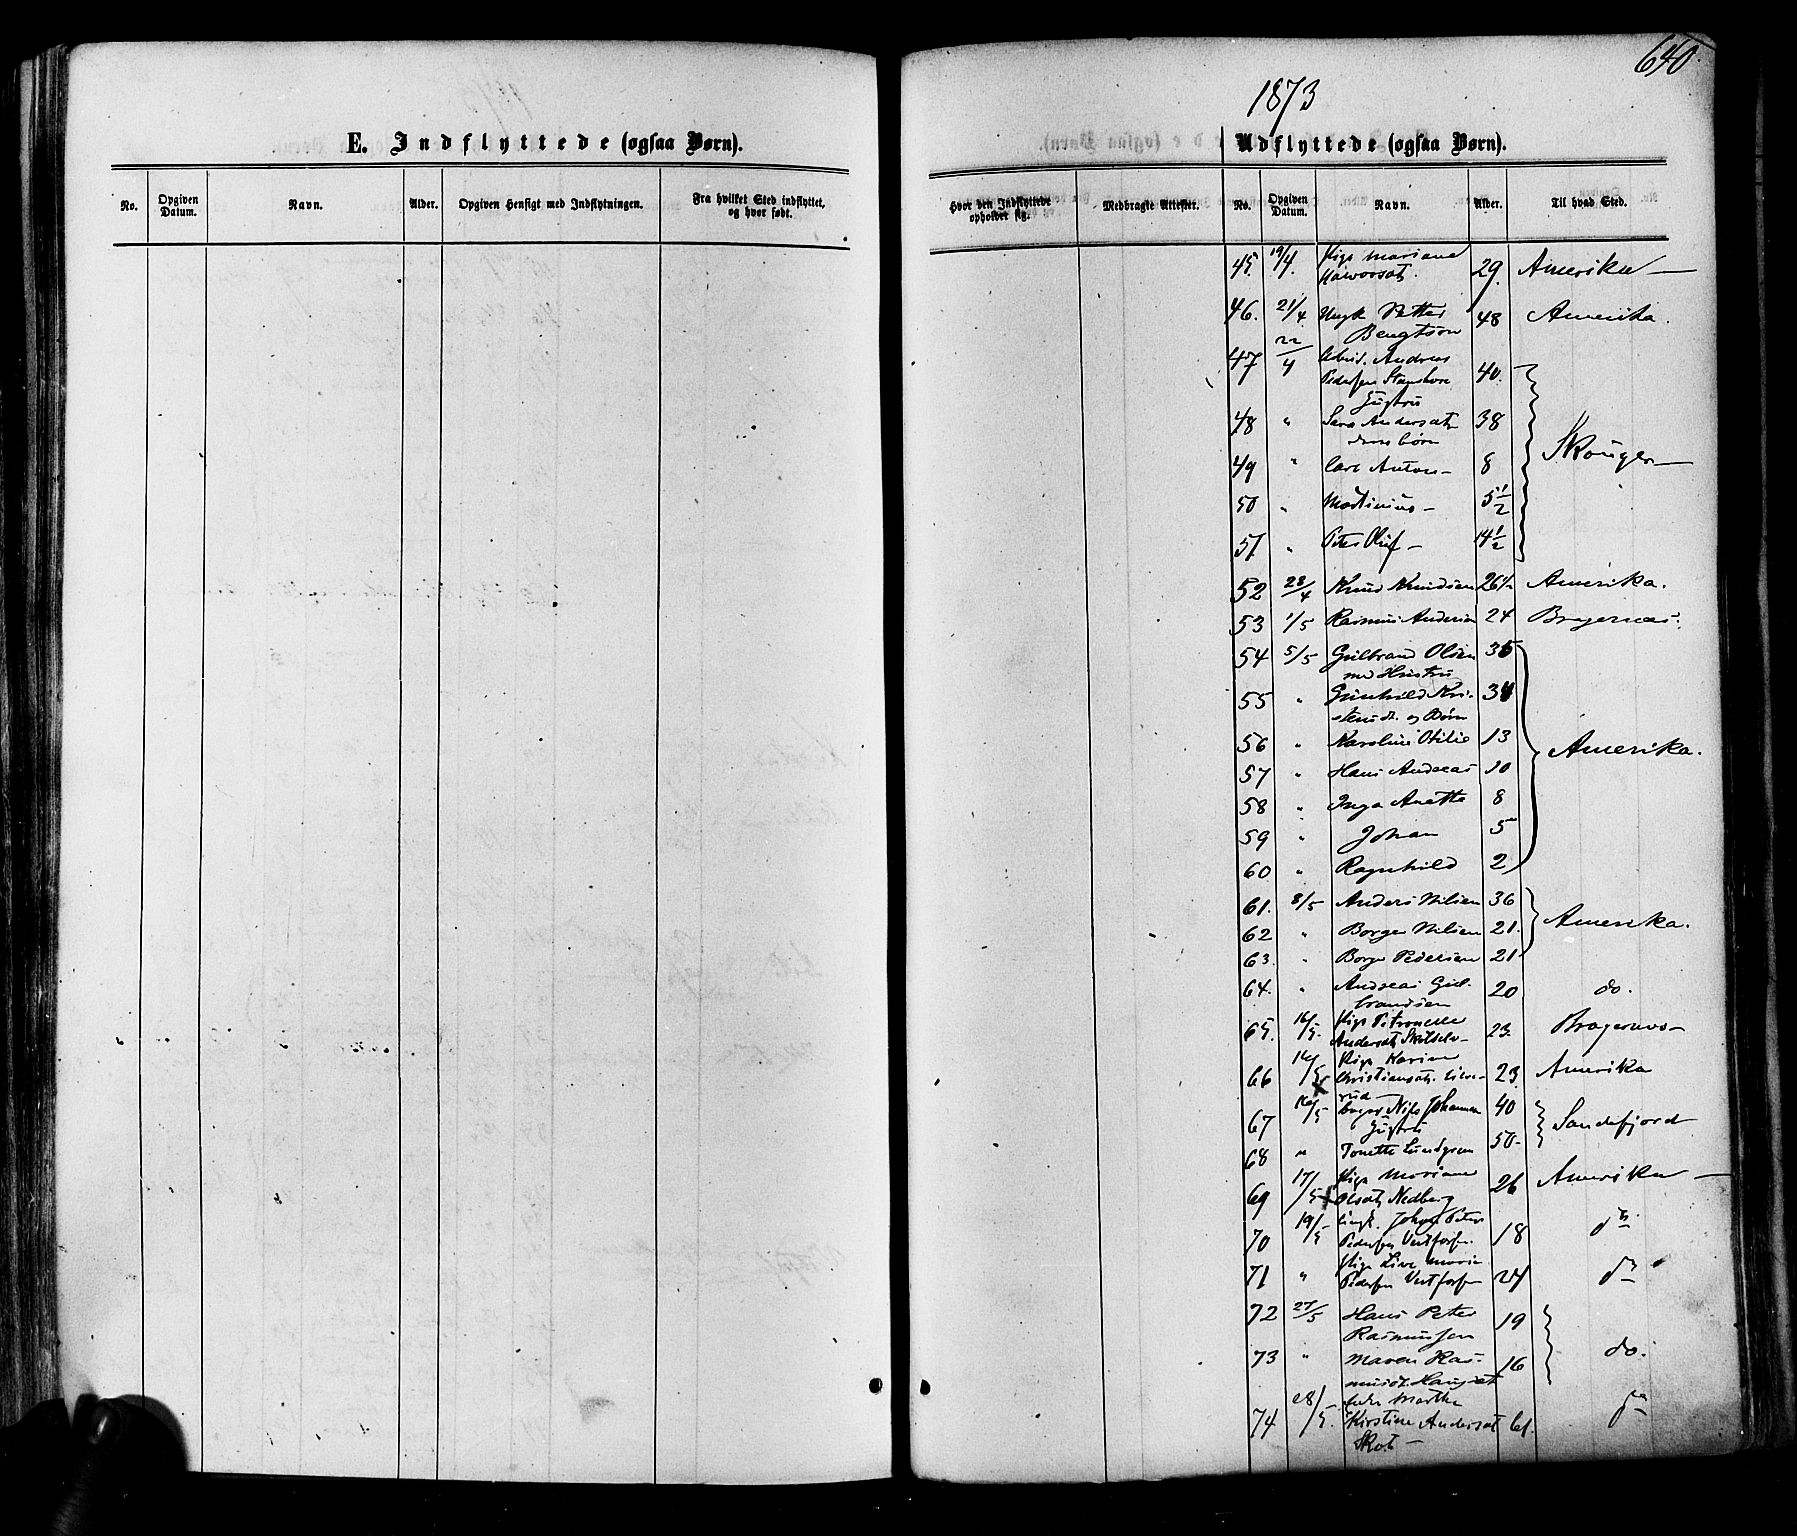 640.
1873
E. Indflyttede (ogsaa Børn).
No.
Opgiven Datum.
Navn.
Alder.
Opgiven Hensigt med Indflytningen.
Fra hvilket Sted indflyttet, og hvor født.
Hvor den Indflyttede opholder sig.
Medbragte Attester.
Udflyttede (ogsaa Børn).
No.
Opgiven Datum.
Navn.
Alder.
Til hvad Sted.
45. 19/4. Pige Mariane 29. Amerika —
46. 21/4 Petter Bengtson 48 Amerika.
47 22/4 Andreas Pedersen 40.
Hustru
48 " Sara Andersdt. 38 Skouger —
deres børn
49 " Carl Anton — 8
50 " Martinius — 5 1/2
51 " Peter Oluf — 14 1/2
52 28/4 Knud Knudsen 26 1/2 Amerika.
53 1/5 Rasmus Andersen 24 Bragernæs.
54 5/5 Gulbrand Olsen 35
med Hustru
55 " Gunhild Kri- 34
stensdt. og Børn
56 " Karoline Otilie 13 Amerika.
57 " Hans Andreas 10
58 " Inga Anette 8
59 " Johan 5
60 " Ragnhild 2
61. 8/5 Anders Nilsen 36
62 " Borger Nilsen 21. Amerika.
63. " Borge Pedersen 21
64. " Andreas Gul- 20 do.
brandsen
65. 16/5. Pige Petronelle 23. Bragernæs —
Andersdt.
66 16/5 Pige Karen 23. Amerika
Christiansdt.
67 16/5 Nils Johannes 40 Sandefjord
Hustru
68 " Tonette 50 —
69 17/5 Pige Mariane 26 Amerika —
Olsdt. Nedberg
70 19/5 Ungk. Johan Peter 18 do
Pedersen Vestfossen
71 " Pige Live Marie 24 do
Pedersen Vestfossen
72 27/5 Hans Peter 19
Rasmussen
73 " Maren Ras- 16 do.
musdt.
74 28/5. Enke Marthe 61. do
Kirstine Andersdt